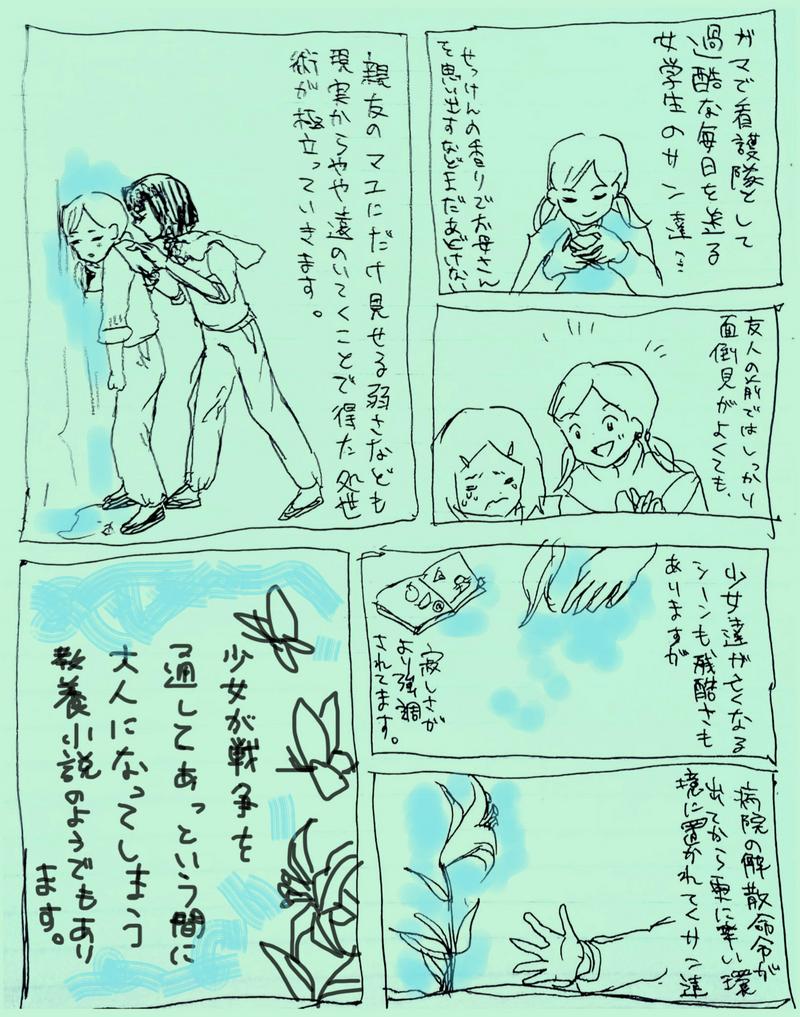 ガマで看護隊として
過酷な毎日を送る
女学生のサン達…
せっけんの香りでお母さん
を思い出すなどまだあどけない
友人の前ではしっかり
面倒見がよくても、
親友のマユにだけ見せる弱さなども
現実からやや遠のいてくことで得た処世
術が極立っていきます。
少女達が亡くなる
シーンも残酷さも
ありますが
寂しさが
より強調
されてます。
病院の解散命令が
出てから更に辛い環
境に置かれてくサン達
少女が戦争を
通してあっという間に
大人になってしまう
教養小説のようでもあり
ます。